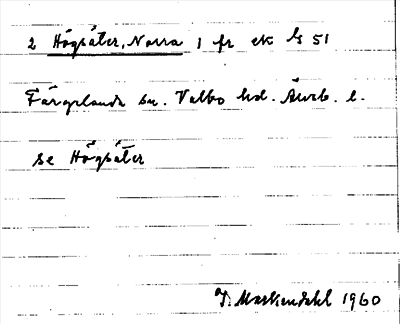 2 Högsäter, Norra 1 fr ek G 51
Färgelanda sn. Valbo hd. Älvsb. l.
se Högsäter
1960